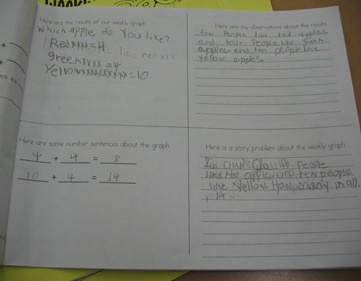 Here are my results of our weekly graph
Which apple do You like?
Redxxxx=4
greenxxxx=4
Yellowxxxxxxxxxx=10
Here are my observations about the results
four People like red apples
and four People like green
apples and ten people like
Yellow apples.
Here are some number sentences about the graph
4 + 4 = 8
10 + 4 = 14
Here is a story problem about the weekly graph
In our Class four People
like red apples and ten people
like Yellow How many in all.
14